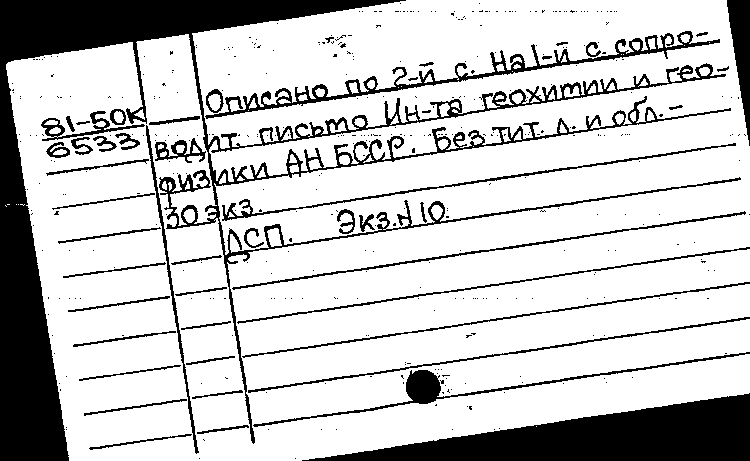 Описано по 2-й с. На 1-й с. сопро-
81-50К
6533
водит. письмо Ин-та геохимии и гео-
физики АН БССР. Без тит. л. и обл. -
30 экз.
ДСП. Экз. N 10